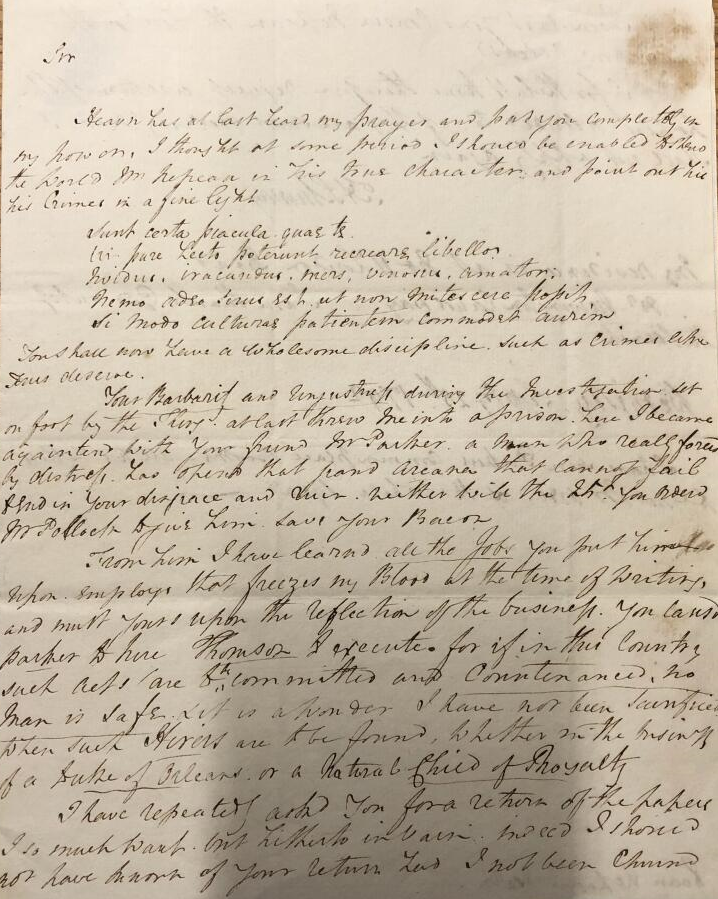 Sir
Heaven has at last heard my prayer and put you completely in
my power, I thought at some period I should be enabled to shew
the World Mr Nepean in his true Character and point out his
his Crimes in a fine light
Sunt certa piacula quae te
ter pure lecto poterunt recreare libello.
Invidus, iracundus, iners, vinosus, amator;
Nemo adeo ferus est, ut non mitescere possit,
Si modo culturae patientem commodet aurem
You shall now have a wholesome discipline. Such as Crimes like
yours deserve.
Your Barbarity and Unjustness during the Investigation set
on foot by the King. at last threw me into a prison. here I became
acquainted with your friend Mr Parker. a man who really forced
by distress. has opend that grand arcana that cannot fail
to End in Your disgrace and ruin. neither will the 25£ you orderd
Mr Pollock to give him. Save your Bacon
From him I have learnd all the Jobs you put him
upon. employs that freezes my Blood at the time of writing,
and must yours upon the reflection of the business. You causd
Parker to hire Thomson to execute. for if in this Country
such acts are to be committed and Countenanced, no
Man is safe. it is a wonder I have not been Sacrificed
when such Hirers are to be found, whether in the business
of a Duke of Orleans. or a Natural Child of Royalty
I have repeatedly askd You for a return of the papers
I so much want. but hitherto in vain. indeed I should
not have known of your return had I not been